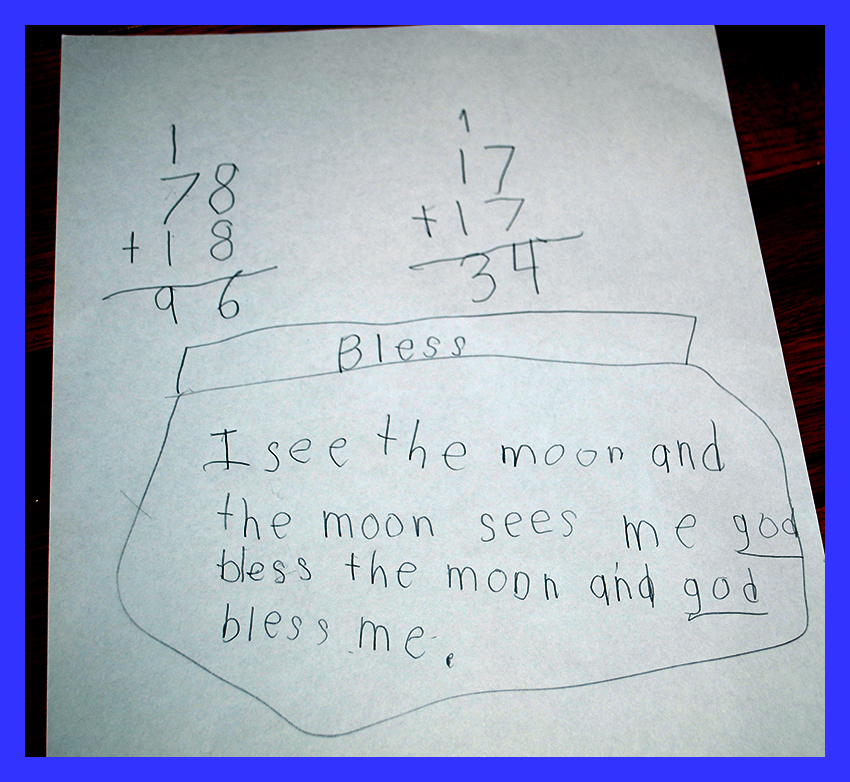 1 1
78 17
+18 +17
96 34
Bless
I see the moon and
the moon sees me god
bless the moon and god
bless me.